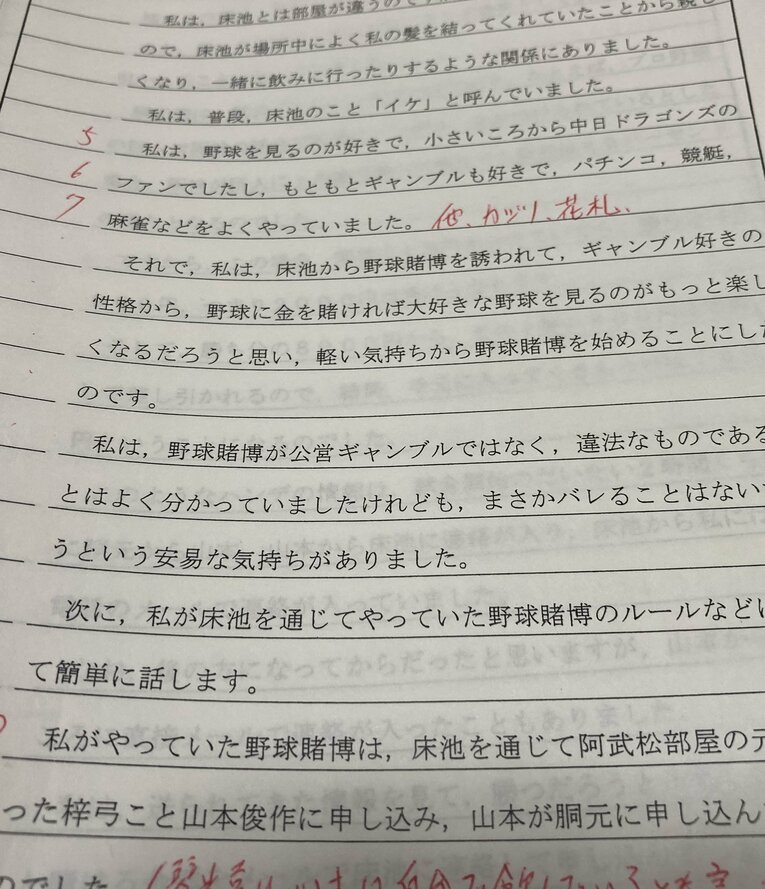 私は，床池とは部屋が違うのです
ので，床池が場所中によく私の髪を結ってくれていたことから親し
くなり，一緒に飲みに行ったりするような関係にありました。
私は，普段，床池のこと「イケ」と呼んでいました。
5 私は，野球を見るのが好きで，小さいころから中日ドラゴンズの
6 ファンでしたし，もともとギャンブルも好きで，パチンコ，競艇，
7 麻雀などをよくやっていました。他、カブ、花札、
それで，私は，床池から野球賭博を誘われて，ギャンブル好きの
性格から，野球に金を賭ければ大好きな野球を見るのがもっと楽し
くなるだろうと思い，軽い気持ちから野球賭博を始めることにした
のです。
私は，野球賭博が公営ギャンブルではなく，違法なものである
とはよく分かっていましたけれども，まさかバレることはない
うという安易な気持ちがありました。
次に，私が床池を通じてやっていた野球賭博のルールなど
て簡単に話します。
私がやっていた野球賭博は，床池を通じて阿武松部屋の元
った梓弓こと山本俊作に申し込み，山本が胴元に申し込ん
のでした